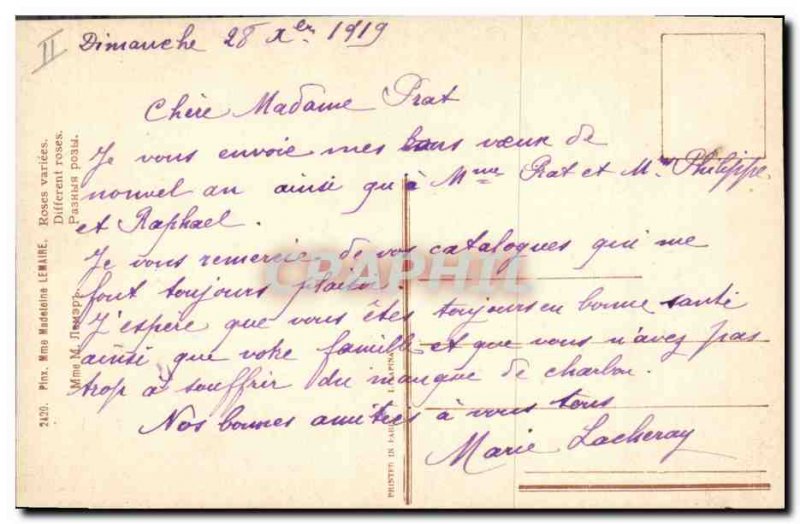 II
Dimanche 28 Xber 1919
Chère Madame Prat
Je vous envoie mes bons vœux de
nouvel an ainsi qu'à Mme Prat et Mrs Philippe
et Raphael.
Je vous remercie de vos catalogues qui me
font toujours plaisir.
J'espère que vous êtes toujours en bonne santé
ainsi que votre famille et que vous n'avez pas
trop à souffrir du manque de charbon.
Nos bonnes amitiés à vous tous
Marie Lacheray
2420. Pinx. Mme Madeleine LEMAIRE. Roses variées.
Different roses.
Mme М. Лемэръ. Разныя розы.
PRINTED IN PARIS I. LAPINA
CPAPHIL